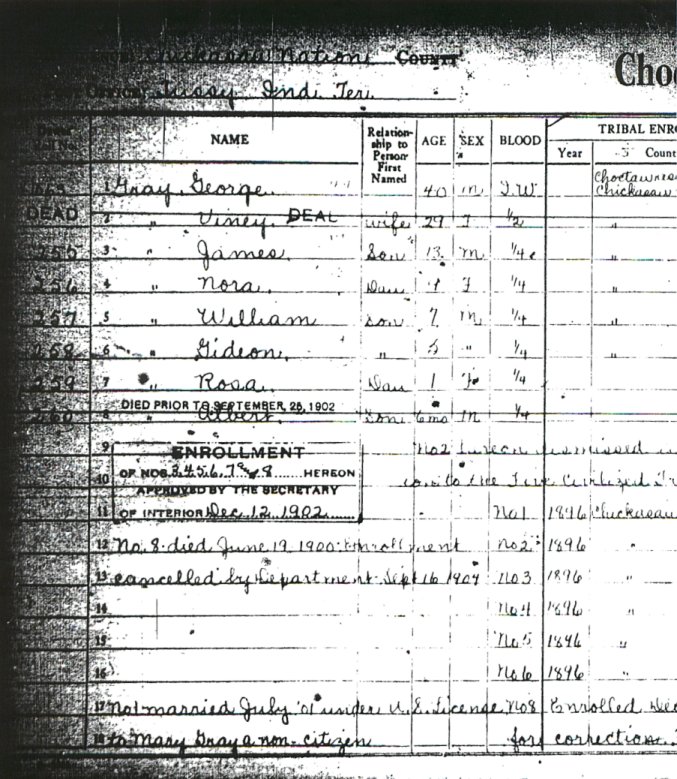 Chickasaw Nation. COUNTY
Tussy, Ind. Ter.
Choc
NAME Relation-ship to Person First Named AGE SEX BLOOD TRIBAL ENRO
Year Count
1 Gray, George 40 M I.W Choctaw res Chickasaw
DEAD 2 " Viney. DEAD wife 29 F 1/2 "
3 " James. Son 13 M 1/4 "
256 4 " Nora. Dau F 1/4 "
257 5 " William Son 7 M 1/4 "
258 6 " Gideon. " 5 " 1/4 "
259 7 " Rosa. Dau 1 F 1/4
DIED PRIOR TO SEPTEMBER 25, 1902
260 8 " Albert. Son 6mo M 1/4
9 No2 hereon dismissed
ENROLLMENT
OF NOS. 3,4,5,6,7 & 8 HEREON
10 to the Five Civilized Tr
APPROVED BY THE SECRETARY
11 OF INTERIOR Dec. 12, 1902 No1 1896 Chickasaw
12 No. 8 died June 19, 1900: Enrollment No2 1896 "
13 cancelled by Department Sept 16 1904 No3 1896 "
14 No4 1896 "
15 No5 1896 "
16 No6 1896 "
17 No1 married July '01 under U.S. License No8 Enrolled Dec
18 to Mary Gray a non-citizen for correction.